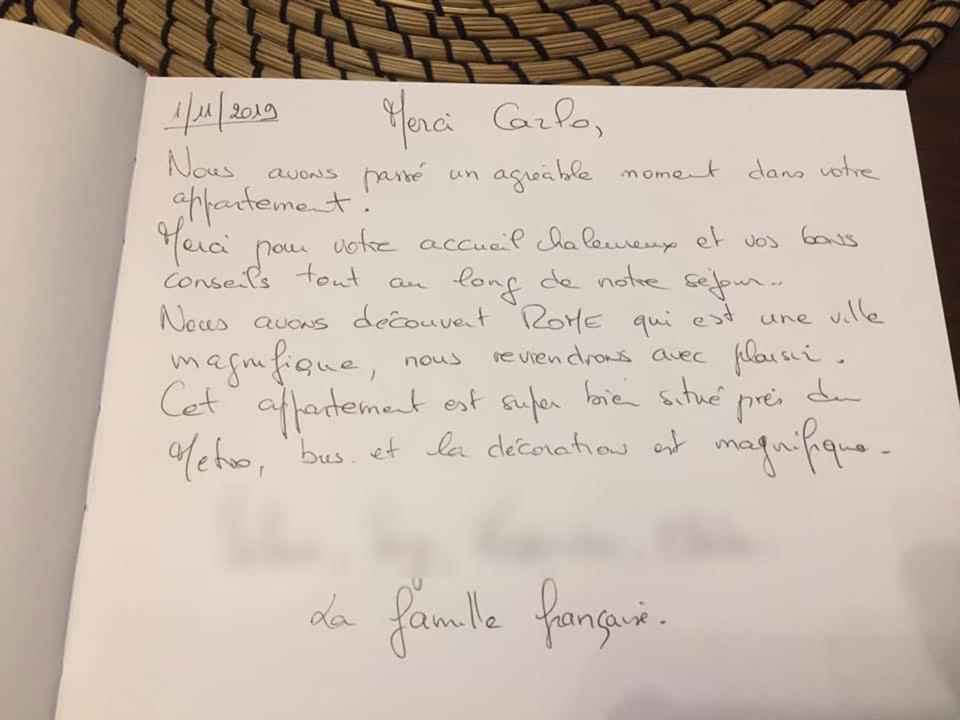 1/11/2019 Merci Carlo,
Nous avons passé un agréable moment dans votre
appartement.
Merci pour votre accueil chaleureux et vos bons
conseils tout au long de notre séjour..
Nous avons découvert ROME qui est une ville
magnifique, nous reviendrons avec plaisir.
Cet appartement est super bien situé près du
Metro, bus. et la décoration est magnifique.
La famille française.